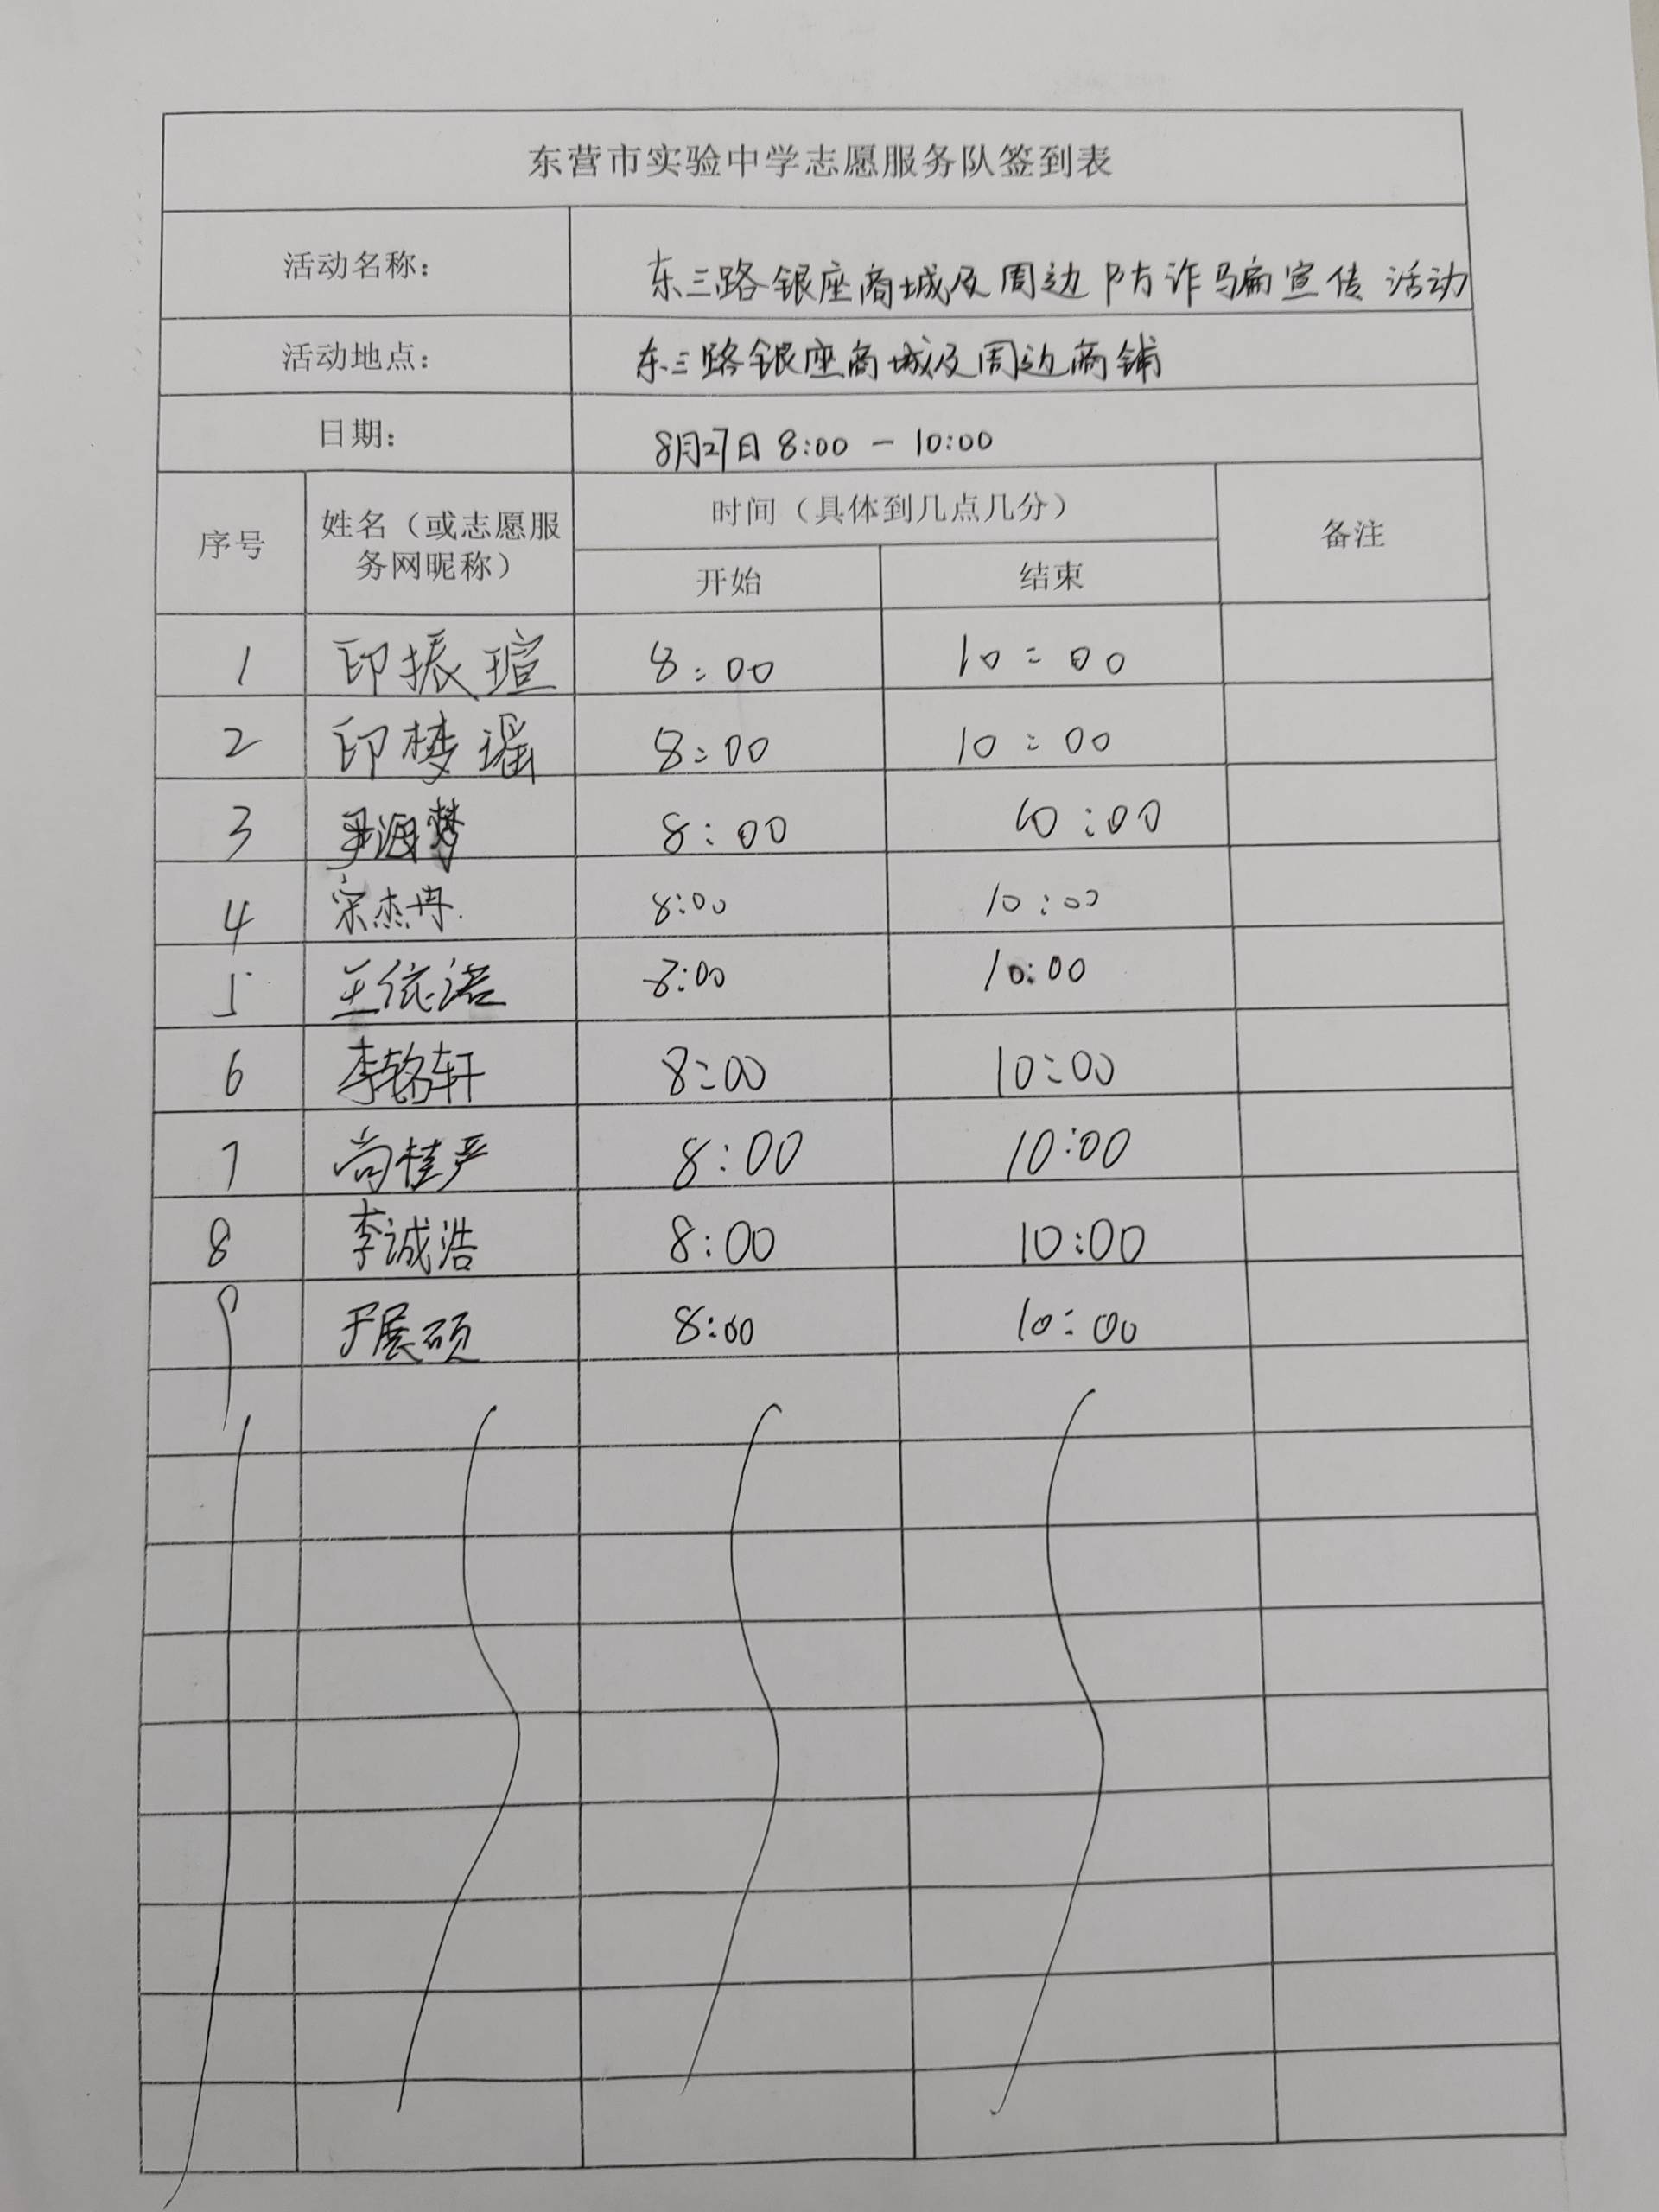 东营市实验中学志愿服务队签到表
活动名称： 东三路银座商城及周边防诈骗宣传活动
活动地点： 东三路银座商城及周边商铺
日期： 8月27日 8:00 - 10:00
序号 姓名（或志愿服务网昵称） 时间（具体到几点几分） 备注
开始 结束
1 印振瑄 8:00 10:00
2 印梦瑶 8:00 10:00
3 8:00 10:00
4 宋杰冉 8:00 10:00
5 王依诺 8:00 10:00
6 李铭轩 8:00 10:00
7 尚桂严 8:00 10:00
8 李诚浩 8:00 10:00
9 于展硕 8:00 10:00